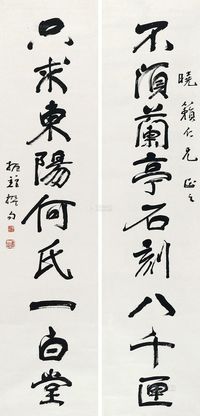 不须蘭亭石刻八千匣
曉籟仁兄
只求東陽何氏一百堂